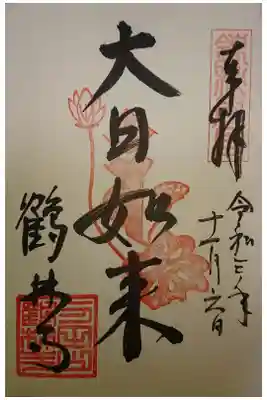 奉拝
令和 年
十一月六日
大日如来
鶴林寺